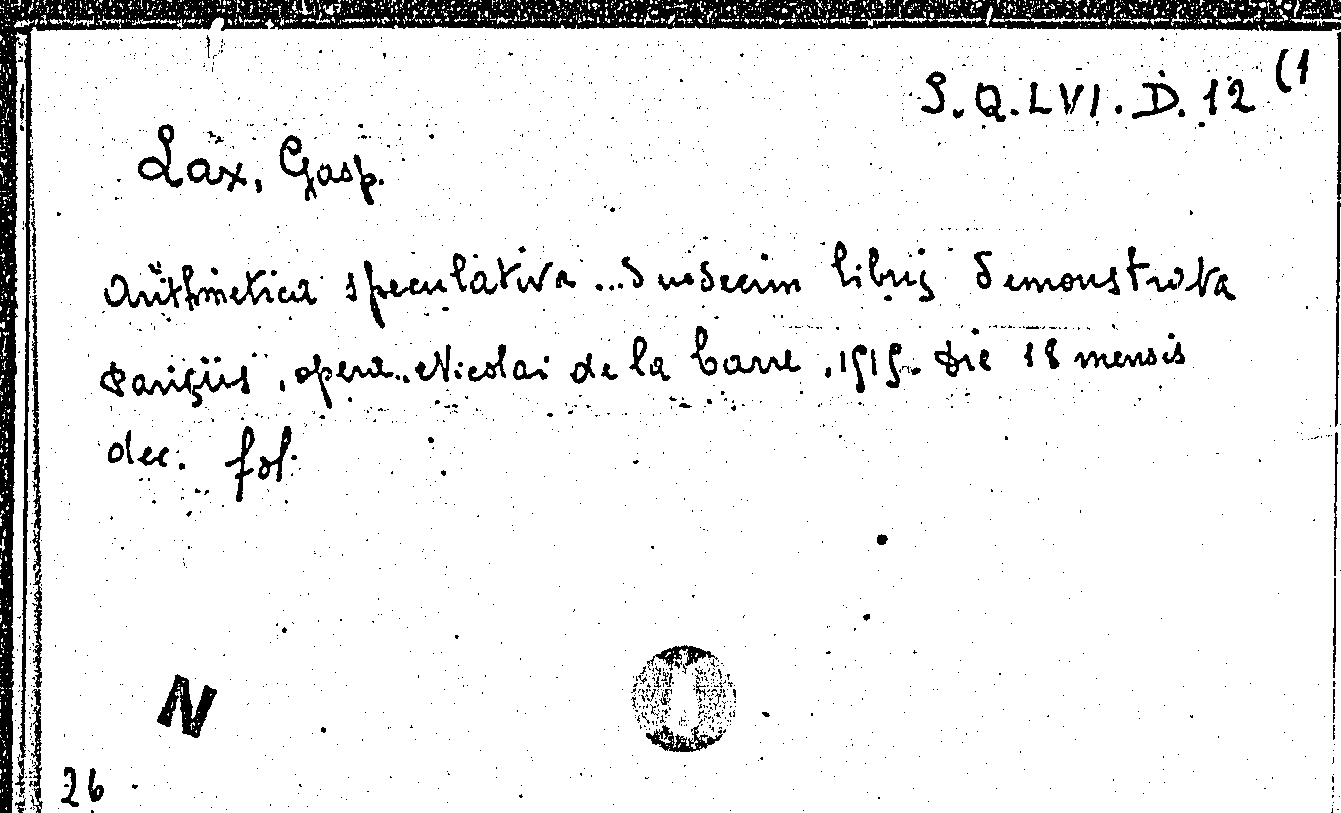 S.Q.LVI.D.12 (1
Lax, Gasp.
Arithmetica speculativa ... duodecim libris demonstrata
Parisiis, opera.. Nicolai de la Barre, 1515. die 18 mensis
dec. fol.
N
26